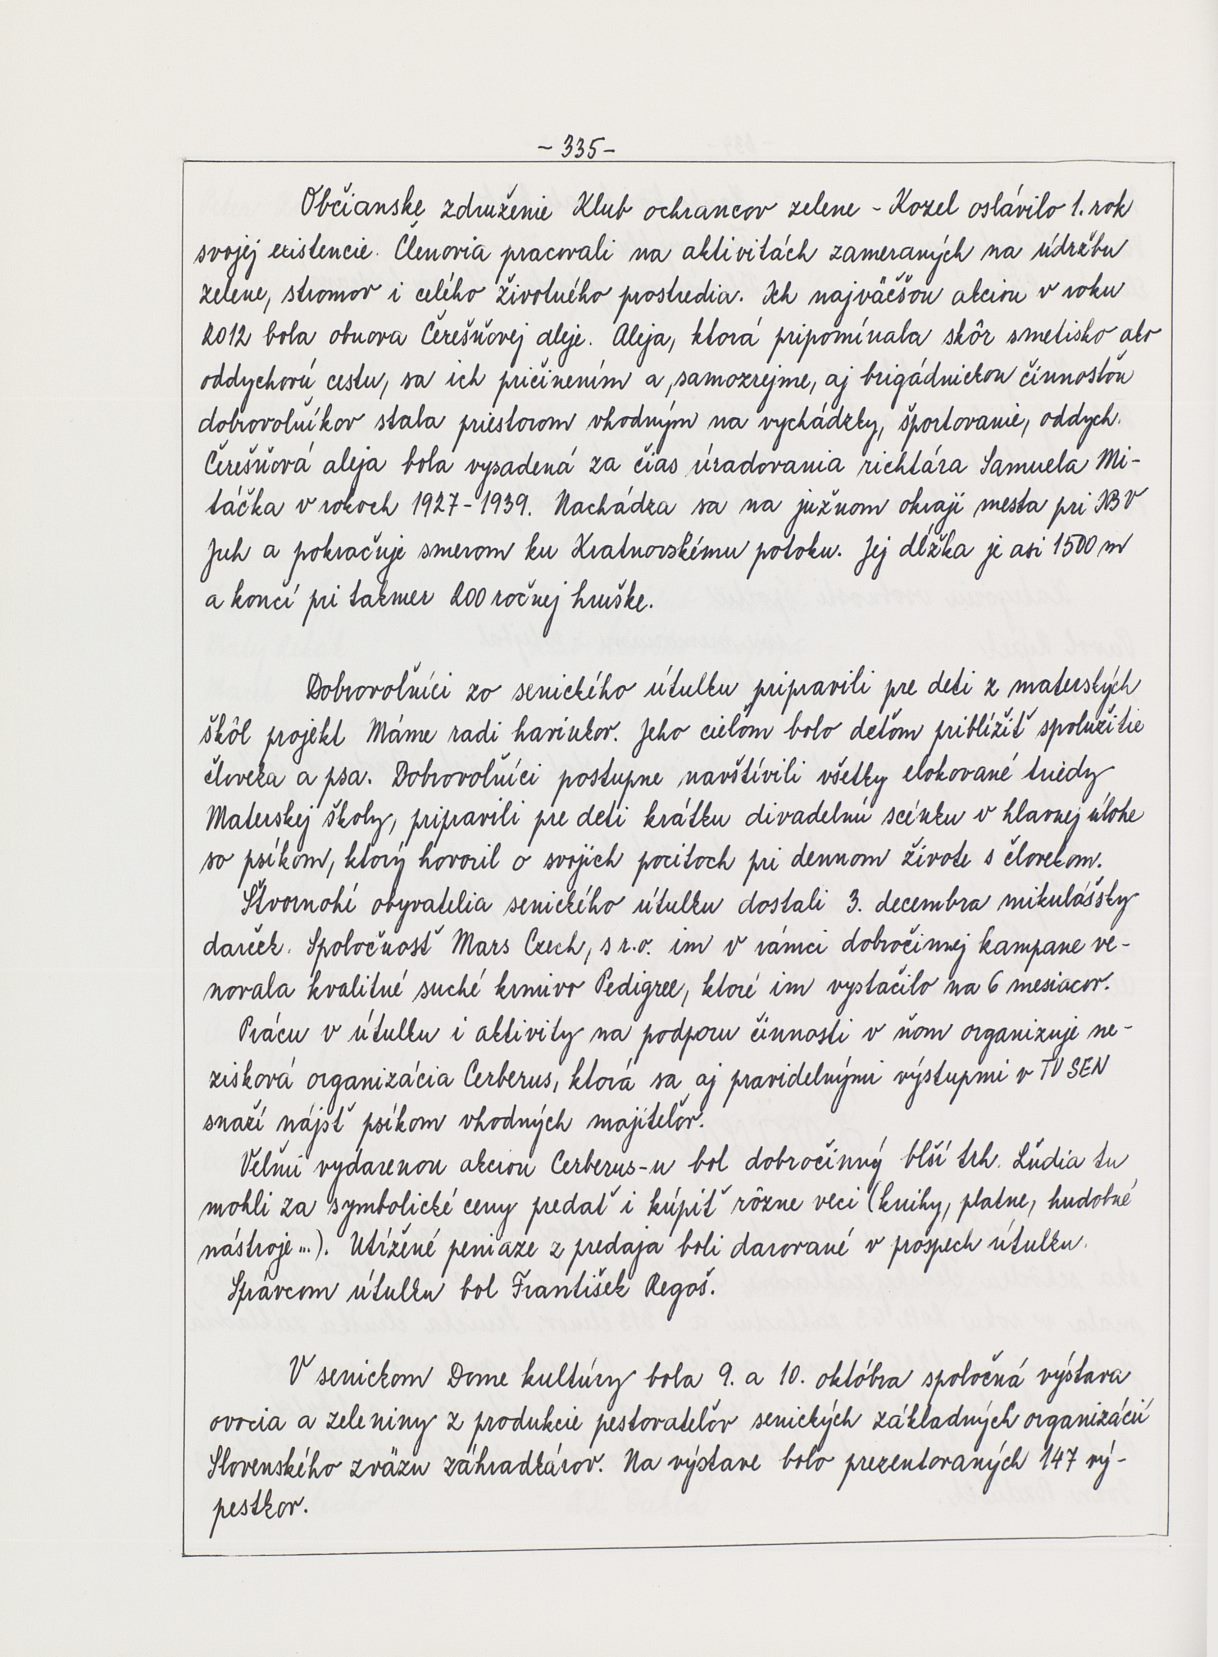 - 335 -
Občianske združenie Klub ochrancov zelene - Kozel oslávilo 1. rok
svojej existencie. Členovia pracovali na aktivitách zameraných na údržbu
zelene, stromov i celého životného prostredia. Ich najväčšou akciou v roku
2012 bola obnova Čerešňovej aleje. Aleja, ktorá pripomínala skôr smetisko ako
oddychovú cestu, sa ich pričinením a, samozrejme, aj brigádnickou činnosťou
dobrovoľníkov stala priestorom vhodným na vychádzky, športovanie, oddych.
Čerešňová aleja bola vysadená za čias úradovania richtára Samuela Mi-
táčka v rokoch 1927-1939. Nachádza sa na južnom okraji mesta pri IBV
Juh a pokračuje smerom ku Kratnovskému potoku. Jej dĺžka je asi 1500 m
a končí pri takmer 200 ročnej hruške.
Dobrovoľníci zo senického útulku pripravili pre deti z materských
škôl projekt Máme radi havinkov. Jeho cieľom bolo deťom priblížiť spolužitie
človeka a psa. Dobrovoľníci postupne navštívili všetky elokované triedy
Materskej školy, pripravili pre deti krátku divadelnú scénku v hlavnej úlohe
so psíkom, ktorý hovoril o svojich pocitoch pri dennom živote s človekom.
Štvornohí obyvatelia senického útulku dostali 3. decembra mikulášsky
darček. Spoločnosť Mars Czech, s r.o. im v rámci dobročinnej kampane ve-
novala kvalitné suché krmivo Pedigree, ktoré im vystačilo na 6 mesiacov.
Prácu v útulku i aktivity na podporu činnosti v ňom organizuje ne-
zisková organizácia Cerberus, ktorá sa aj pravidelnými výstupmi v TV SEN
snaží nájsť psíkom vhodných majiteľov.
Veľmi vydarenou akciou Cerberus-u bol dobročinný blší trh. Ľudia tu
mohli za symbolické ceny predať i kúpiť rôzne veci (knihy, platne, hudobné
nástroje...). Utŕžené peniaze z predaja boli darované v prospech útulku.
Správcom útulku bol František Regoš.
V senickom Dome kultúry bola 9. a 10. októbra spoločná výstava
ovocia a zeleniny z produkcie pestovateľov senických základných organizácií
Slovenského zväzu záhradkárov. Na výstave bolo prezentovaných 147 vý-
pestkov.